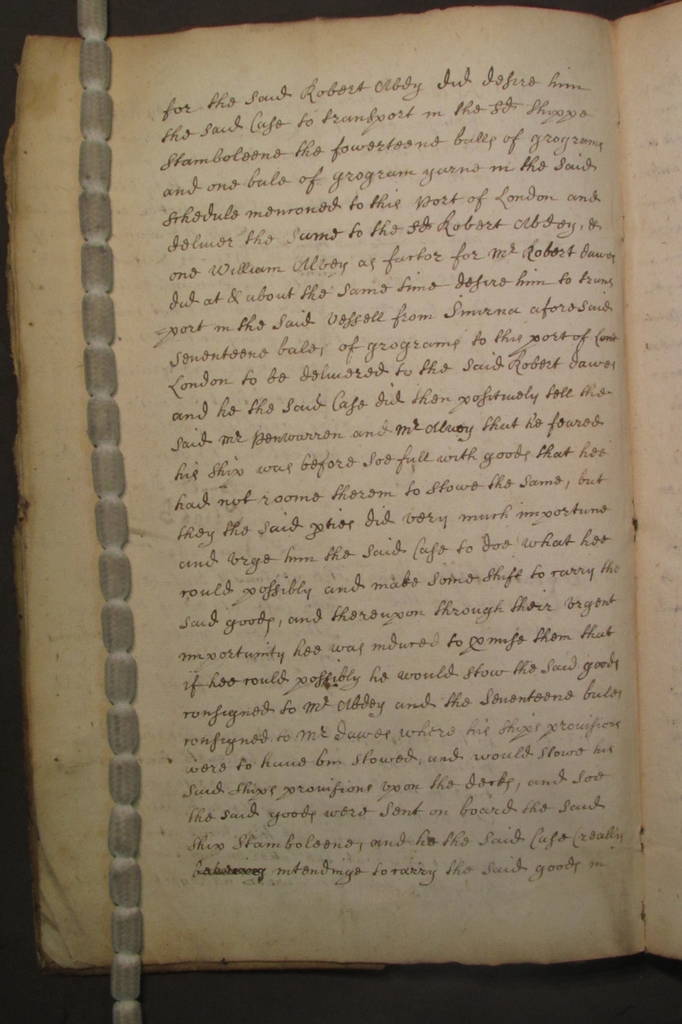 for the said Robert Abdy did desire him
the said Case to transport in the sd shippe
Stamboleene the fowerteene balls of grograms
and one bale of grogram yarne in the said
schedule menconed to this port of London and
deliver the same to the sd Robert Abdey, &
one William Abey as factor for Mr Robert dawes
did at & about the same time desire him to trans
port in the said vessell from Smirna aforesaid
seventeene bales of grograms to this port of Lon
London to be delivered to the said Robert dawes
and he the said Case did then positively tell the
said Mr Penwarren and Mr that he feared
his ship was before soe full with goods that hee
had not roome therein to stowe the same, but
they the said pties did very much importune
and urge him the said Case to doe what hee
could possibly and make some shift to carry the
said goods, and thereupon through their urgent
importunity hee was induced to pmise them that
if hee could possibly he would stow the said goods
consigned to Mr Abdey and the seventeene bales
consigned to Mr dawes where his ships provisions
were to have bin stowed, and would stowe his
said ships provisions upon the decks, and soe
the said goods were sent on board the said
ship Stamboleene, and he the said Case (really
intendinge to carry the said goods in